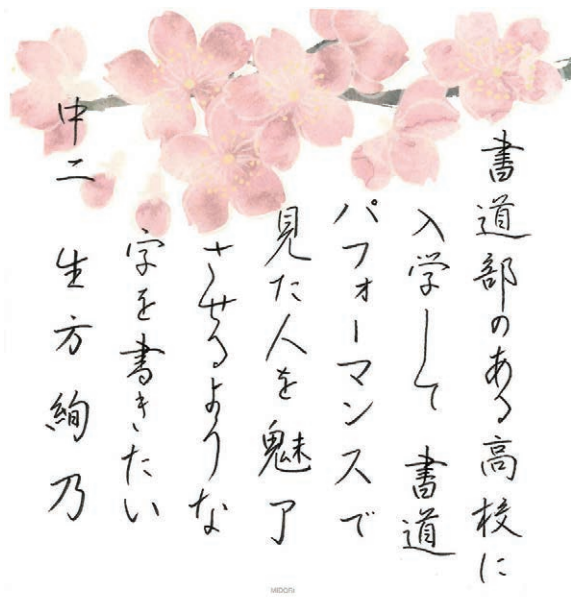 書道部のある高校に
入学して 書道
パフォーマンスで
見た人を魅了
させるような
字を書きたい
中二 生方絢乃
MIDORI